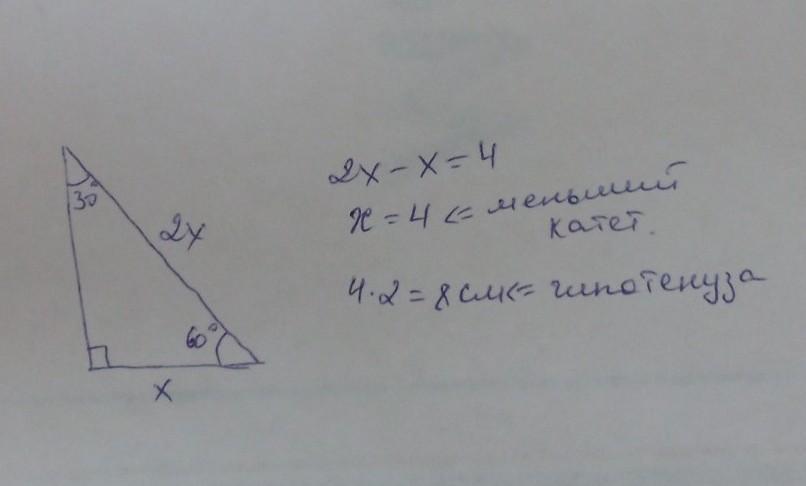 30°
2x
60°
x
2x - x = 4
x = 4 <= меньший
катет.
4·2 = 8 см <= гипотенуза